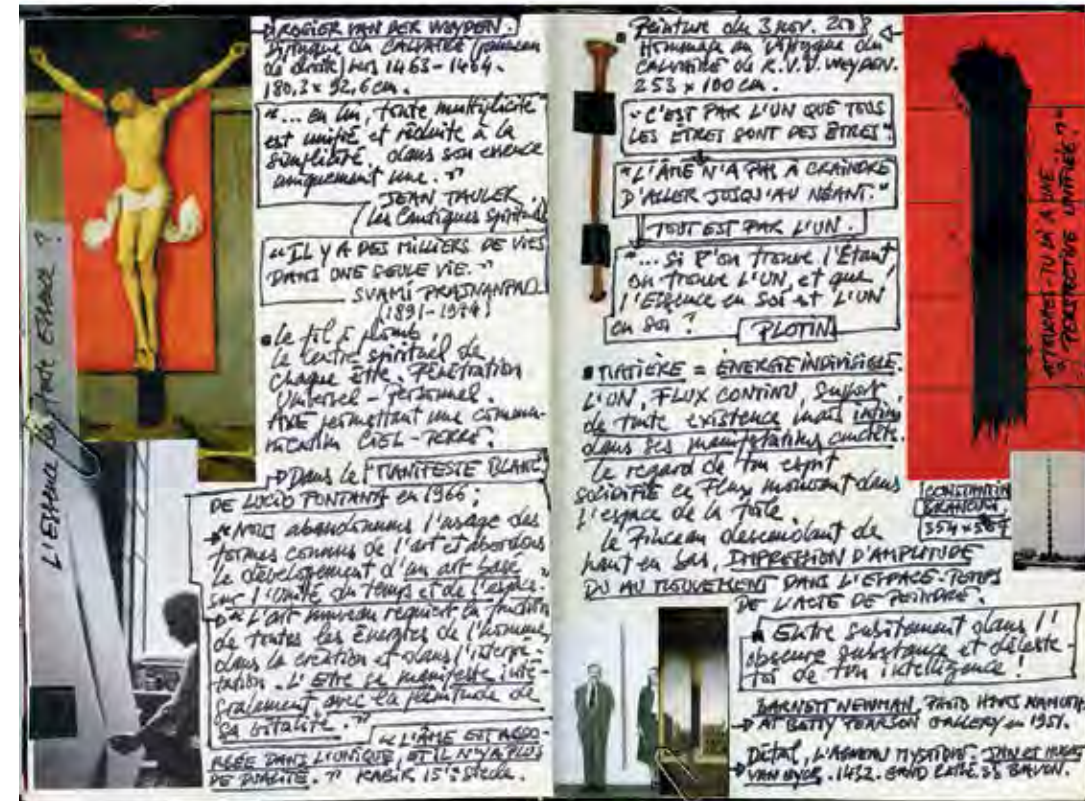 L'Essence pas toute Essence ?
ROGIER VAN DER WEYDEN.
Diptyque du CALVAIRE (panneau
de droite) vers 1463-1464.
180,3 x 92,6 cm.
"... en lui, toute multiplicité
est unifiée et réduite à la
simplicité, dans son essence
uniquement une."
JEAN TAULER
(Les Cantiques Spirituels)
"IL Y A DES MILLIERS DE VIES
DANS UNE SEULE VIE."
SVAMI PRAJNANPAD
(1891-1974)
le fil à plomb,
Le centre spirituel de
chaque Être. Pénétration
Universel - Personnel.
AXE permettant une commu-
nication CIEL-TERRE.
Dans le MANIFESTE BLANC
DE LUCIO FONTANA en 1966 ;
"Nous abandonnons l'usage des
formes connues de l'art et abordons
le développement d'un art basé
sur l'Unité du temps et de l'espace."
"L'art nouveau requiert la fonction
de toutes les énergies de l'homme,
dans la création et dans l'interpré-
tation. L'Être se manifeste inté-
gralement, avec la plénitude de
sa vitalité."
"L'ÂME EST ABSOR-
BÉE DANS L'UNIQUE, ET IL N'Y A PLUS
DE DUALITÉ." KABIR 15e Siècle.
Peinture du 3 nov. 2008
Hommage au Diptyque du
CALVAIRE de R.V.D. WEYDEN.
253 x 100 cm.
"C'EST PAR L'UN QUE TOUS
LES ÊTRES SONT DES ÊTRES"
"L'ÂME N'A PAS À CRAINDRE
D'ALLER JUSQU'AU NÉANT."
TOUT EST PAR L'UN.
"... Si l'on trouve l'Étant
on trouve L'UN, et que
l'Essence en Soi est L'UN
en Soi ?
PLOTIN
MATIÈRE = ÉNERGIE INDIVISIBLE.
L'UN, FLUX CONTINU, support
de toute existence mais infini
dans ses manifestations
Le regard de ton esprit
solidifie ce Flux mouvant dans
l'espace de la toile.
Le Pinceau descendant de
haut en bas, IMPRESSION D'AMPLITUDE
DU AU MOUVEMENT DANS L'ESPACE-TEMPS
DE L'ACTE DE PEINDRE.
Entre subitement dans l'
obscure substance et déleste-
toi de ton intelligence !
BARNETT NEWMAN, PHOTO HANS NAMUTH
AT BETTY PEARSON GALLERY en 1951.
Détail, L'AGNEAU MYSTIQUE. JAN ET HUBERT
VAN EYCK. 1432. GAND CATHÉ. ST BAVON.
ATTEINDRAS-TU LÀ À UNE
"PERSPECTIVE UNIFIÉE" ?
CONSTANTIN
BRANCUSI